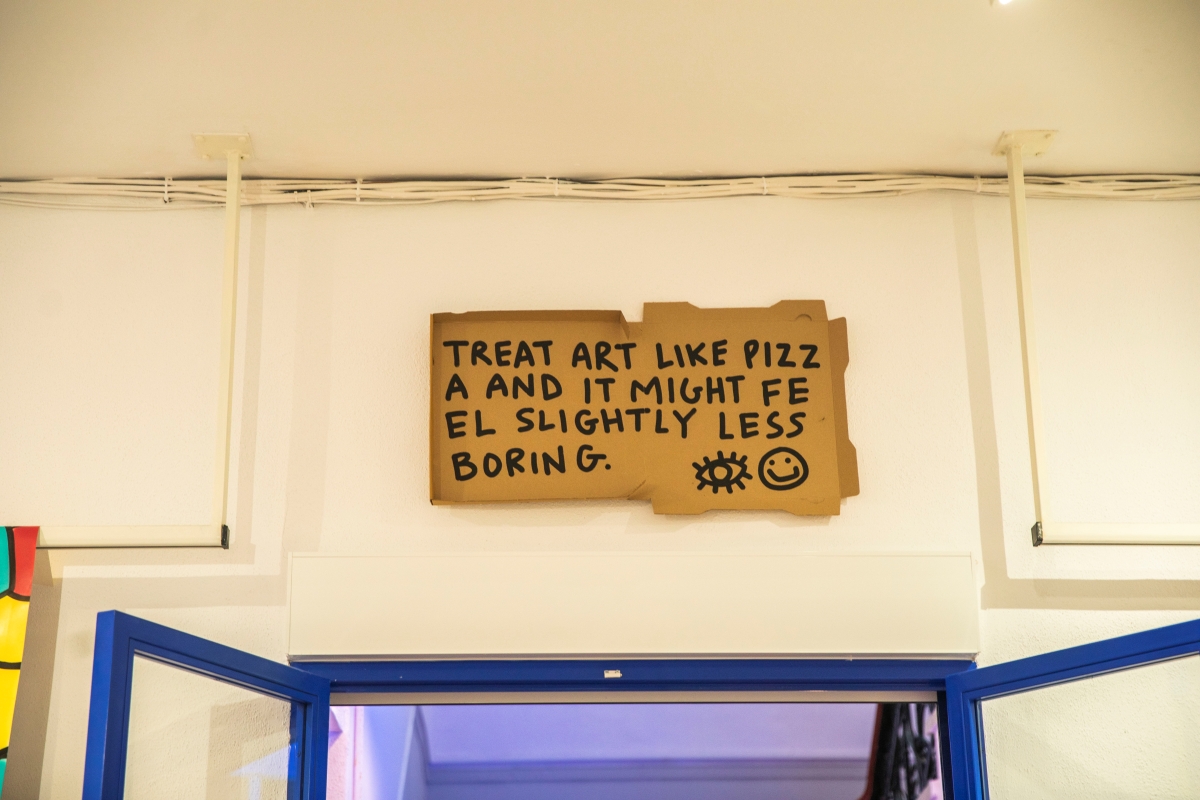 TREAT ART LIKE PIZZ
A AND IT MIGHT FE
EL SLIGHTLY LESS
BORING.